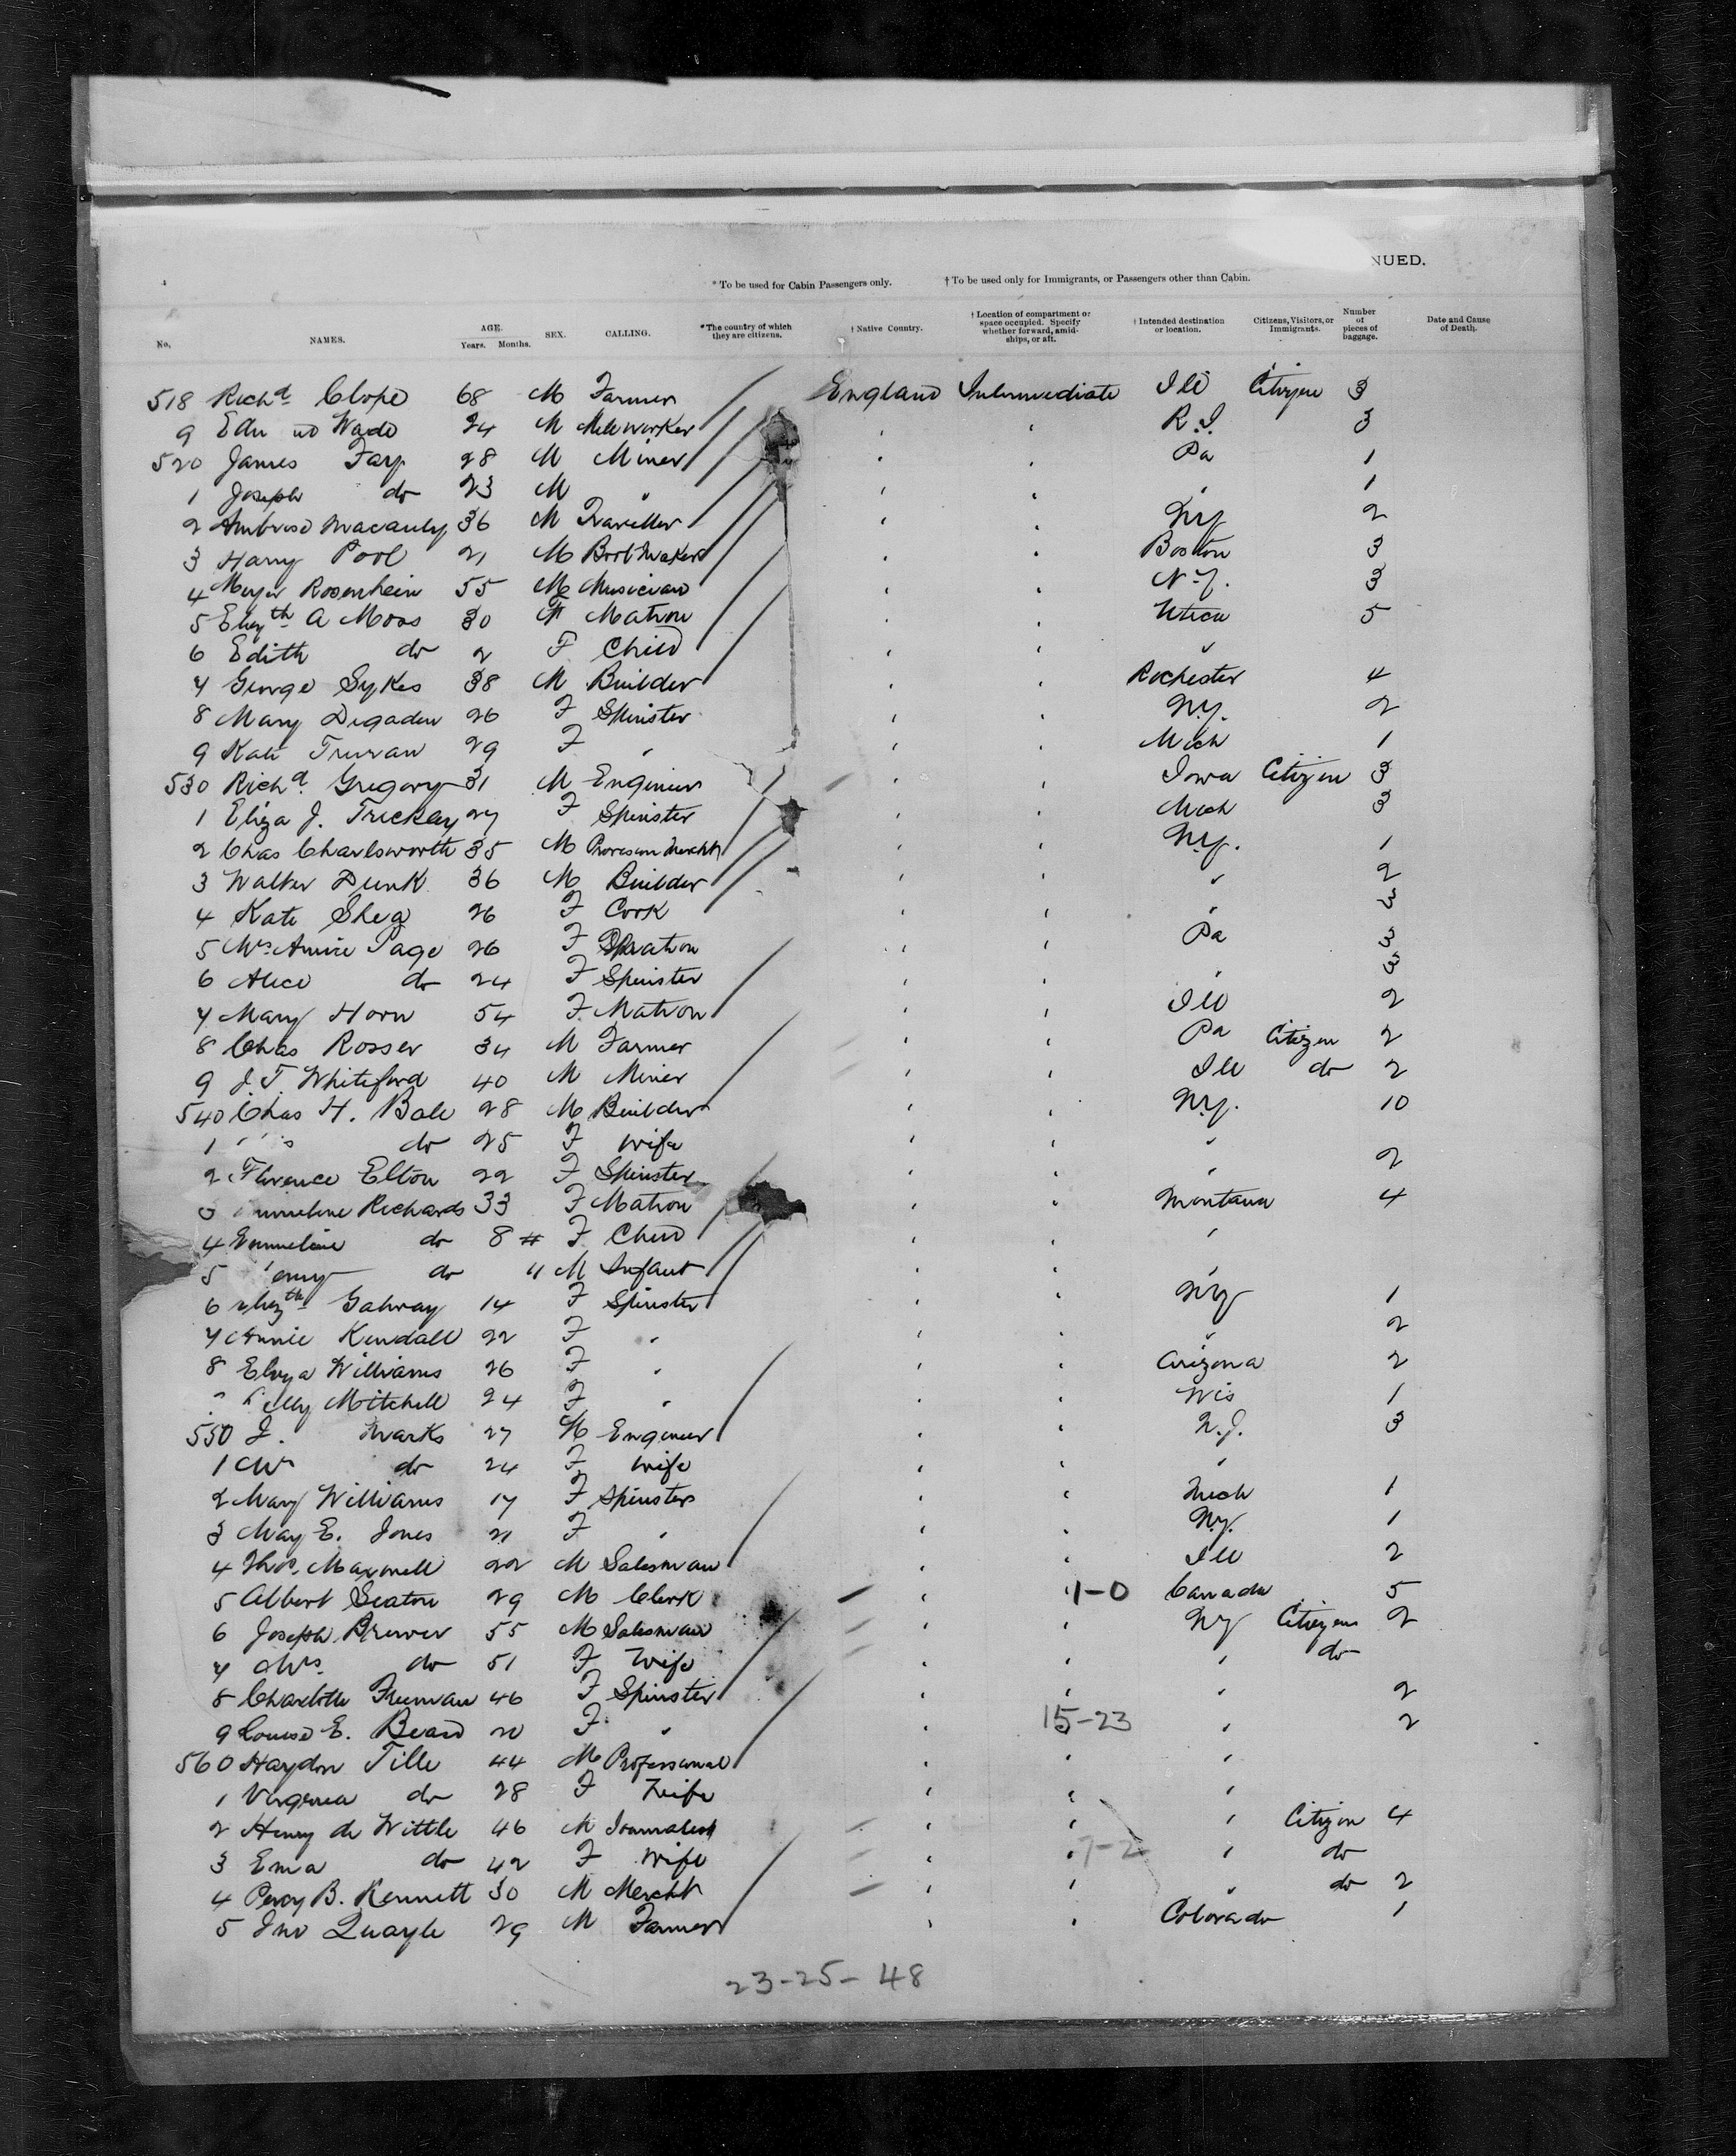 NUED.
* To be used for Cabin Passengers only. † To be used only for Immigrants, or Passengers other than Cabin.
No. NAMES. AGE. Years. Months. SEX. CALLING. * The country of which they are citizens. † Native Country. † Location of compartment or space occupied. Specify whether forward, amidships, or aft. † Intended destination or location. Citizens, Visitors, or Immigrants. Number of pieces of baggage. Date and Cause of Death.
518 Richd Clope 68 M Farmer England Intermediate Ill Citizen 3
9 Wade 24 M Millworker " " R.I. 3
520 James Farp 28 M Miner " " Pa 1
1 Joseph do 23 M " " " " 1
2 Ambrose Macauly 36 M Traveller " " NY 2
3 Harry Pool 21 M Bootmaker " " Boston 3
4 Meyer Rosenhein 55 M Musician " " N.Y. 3
5 Elizth A Moss 30 F Matron " " Utica 5
6 Edith do 2 F Child " " "
7 George Sykes 38 M Builder " " Rochester 4
8 Mary Degaden 26 F Spinster " " N.Y. 2
9 Kate Truran 29 F " " " Mich 1
530 Richd Gregory 31 M Engineer " " Iowa Citizen 3
1 Eliza J. Trickey 27 F Spinster " " Mich 3
2 Chas Charlsworth 35 M Provision Mercht " " N.Y. 1
3 Walter Dunk 36 M Builder " " " 2
4 Kate Shea 26 F Cook " " " 3
5 Mrs Annie Page 26 F Matron " " Pa 3
6 Alice do 24 F Spinster " " " 3
7 Mary Horn 54 F Matron " " Ill 2
8 Chas Rosser 34 M Farmer " " Pa Citizen 2
9 J. T. Whiteford 40 M Miner " " Ill do 2
540 Chas H. Bale 28 M Builder " " N.Y. 10
1 do 25 F Wife " " "
2 Florence Elton 22 F Spinster " " " 2
3 Richards 33 F Matron " " Montana 4
4 Emmeline do 8 F Child " " "
5 do 11 M Infant " " "
6 Galway 14 F Spinster " " NY 1
7 Annie Kendall 22 F " " " " 2
8 Eliza Williams 26 F " " " Arizona 2
Mitchell 24 F " " " Wis 1
550 J. Marks 27 M Engineer " " N.J. 3
1 Mrs do 24 F Wife " " "
2 Mary Williams 17 F Spinster " " Mich 1
3 May E. Jones 21 F " " " N.Y. 1
4 Thos. Maxwell 22 M Salesman " " Ill 2
5 Albert Seaton 29 M Clerk " 1-0 Canada 5
6 Joseph Brewer 55 M Salesman " " NY Citizen 2
7 Mrs. do 51 F Wife " " " do
8 Charlotte Freeman 46 F Spinster " " " 2
9 Louise E. Beard 20 F " " 15-23 " 2
560 Haydon Tille 44 M Professional " " "
1 Virginia do 28 F Wife " " "
2 Henry de Wittle 46 M Journalist " " " Citizen 4
3 Ema do 42 F Wife " 7-2 " do
4 Percy B. Kennett 30 M Mercht " " " do 2
5 Jno Quayle 29 M Farmer " " Colorado 1
23-25-48